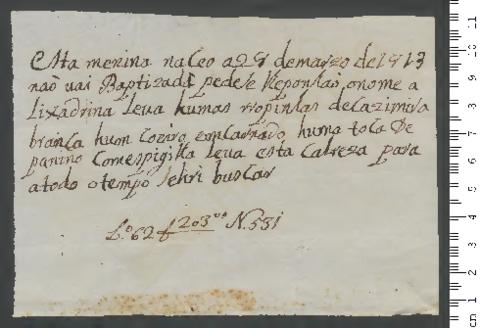 Esta menina naceo a 25 de marzo de 1813
naõ vai Baptizada pedese lleponhaõ o nome a
Lixadrina leva humas rropinhas de Cazimira
branca hum coeiro emCarnado huma toca De
panino Comespigilha leva esta Cabreza para
atodo otempo sehir buscar
L.º 62 f 203 N. 531